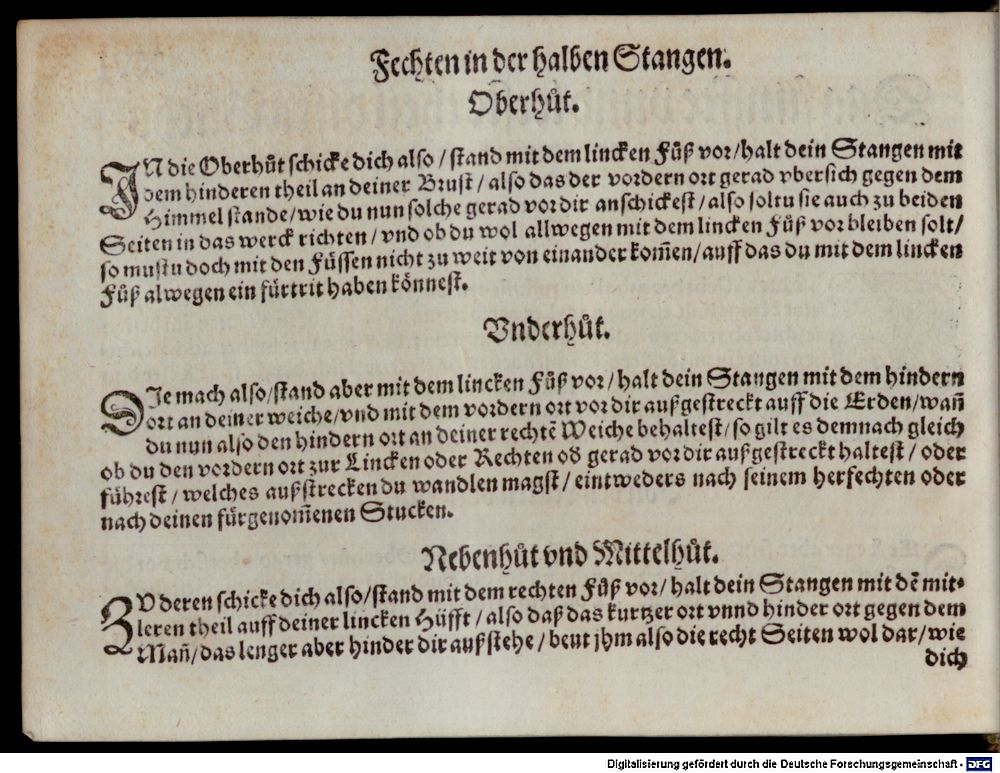 Fechten in der halben Stangen.
Oberhůt.
IN die Oberhůt schicke dich also / stand mit dem lincken Fůß vor / halt dein Stangen mit
dem hinderen theil an deiner Brust / also das der vordern ort gerad vbersich gegen dem
Himmel stande / wie du nun solche gerad vor dir anschickest / also soltu sie auch zu beiden
Seiten in das werck richten / vnd ob du wol allwegen mit dem lincken Fůß vor bleiben solt /
so mustu doch mit den Füssen nicht zu weit von einander kom̃en / auff das du mit dem lincken
Fůß alwegen ein fürtrit haben könnest.
Vnderhůt.
DIe mach also / stand aber mit dem lincken Fůß vor / halt dein Stangen mit dem hindern
ort an deiner weiche / vnd mit dem vordern ort vor dir außgestreckt auff die Erden / wañ
du nun also den hindern ort an deiner rechtẽ Weiche behaltest / so gilt es demnach gleich
ob du den vordern ort zur Lincken oder Rechten od̕ gerad vor dir außgestreckt haltest / oder
führest / welches außstrecken du wandlen magst / eintweders nach seinem herfechten oder
nach deinen fürgenom̃enen Stucken.
Nebenhůt vnd Mittelhůt.
ZV deren schicke dich also / stand mit dem rechten Fůß vor / halt dein Stangen mit dẽ mit-
leren theil auff deiner lincken Hüfft / also daß das kurtzer ort vnnd hinder ort gegen dem
Mañ / das lenger aber hinder dir auß stehe / beut jhm also die recht Seiten wol dar / wie
dich
Digitalisierung gefördert durch die Deutsche Forschungsgemeinschaft - DFG